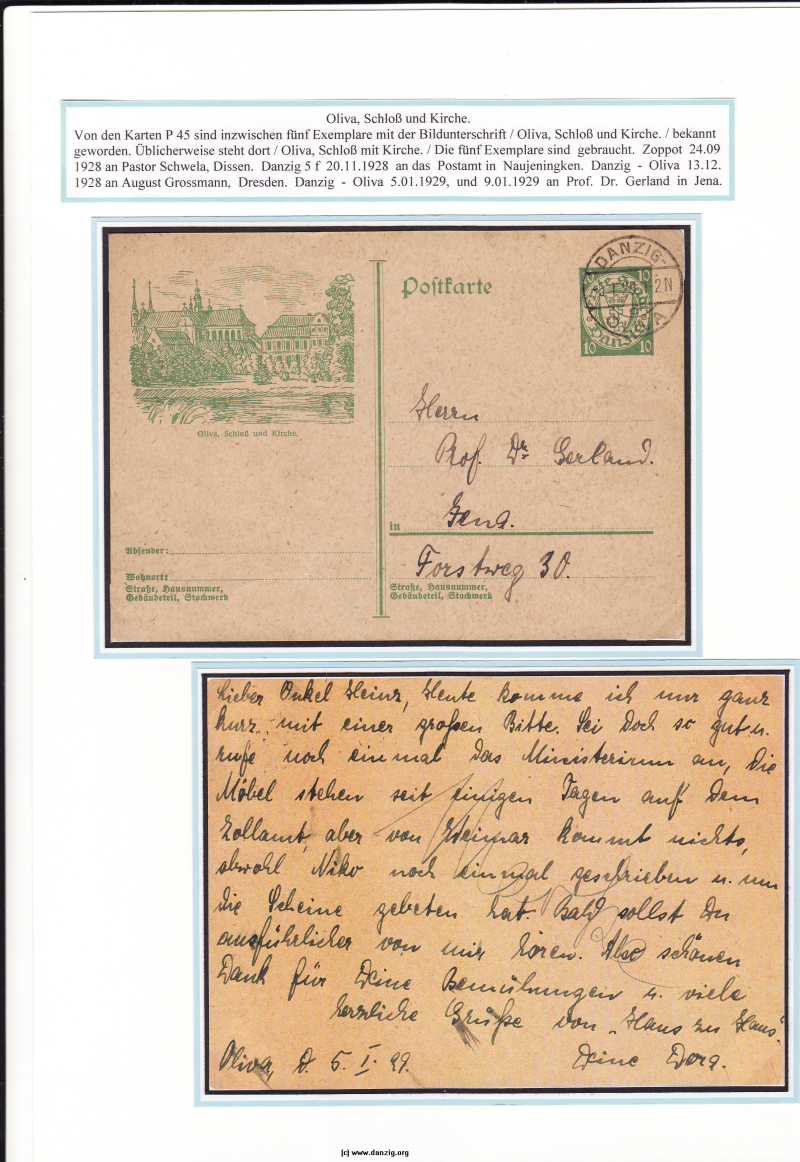 Oliva, Schloß und Kirche.
Von den Karten P 45 sind inzwischen fünf Exemplare mit der Bildunterschrift / Oliva, Schloß und Kirche. / bekannt
geworden. Üblicherweise steht dort / Oliva, Schloß mit Kirche. / Die fünf Exemplare sind gebraucht. Zoppot 24.09
1928 an Pastor Schwela, Dissen. Danzig 5 f 20.11.1928 an das Postamt in Naujeningken. Danzig - Oliva 13.12.
1928 an August Grossmann, Dresden. Danzig - Oliva 5.01.1929, und 9.01.1929 an Prof. Dr. Gerland in Jena.
Postkarte
DANZIG-
2N
10
Danzig
10 10
Oliva, Schloß und Kirche.
Herrn
Prof. Dr. Gerland.
in Jena.
Forstweg 30.
Absender:
Wohnort:
Straße, Hausnummer,
Gebäudeteil, Stockwerk
Straße, Hausnummer,
Gebäudeteil, Stockwerk
Lieber Onkel Heinz, Heute komme ich nur ganz
kurz mit einer großen Bitte. Sei doch so gut u.
rufe noch einmal das Ministerium an, die
Möbel stehen seit einigen Tagen auf dem
Zollamt, aber von Weimar kommt nichts,
obwohl Niko noch einmal geschrieben u. um
die Scheine gebeten hat. Bald sollst Du
ausführlicher von mir hören. Also schönen
Dank für Deine Bemühungen u. viele
herzliche Grüße von „Haus zu Haus"
Oliva, d. 5. I. 29. Deine Dora.
(c) www.danzig.org